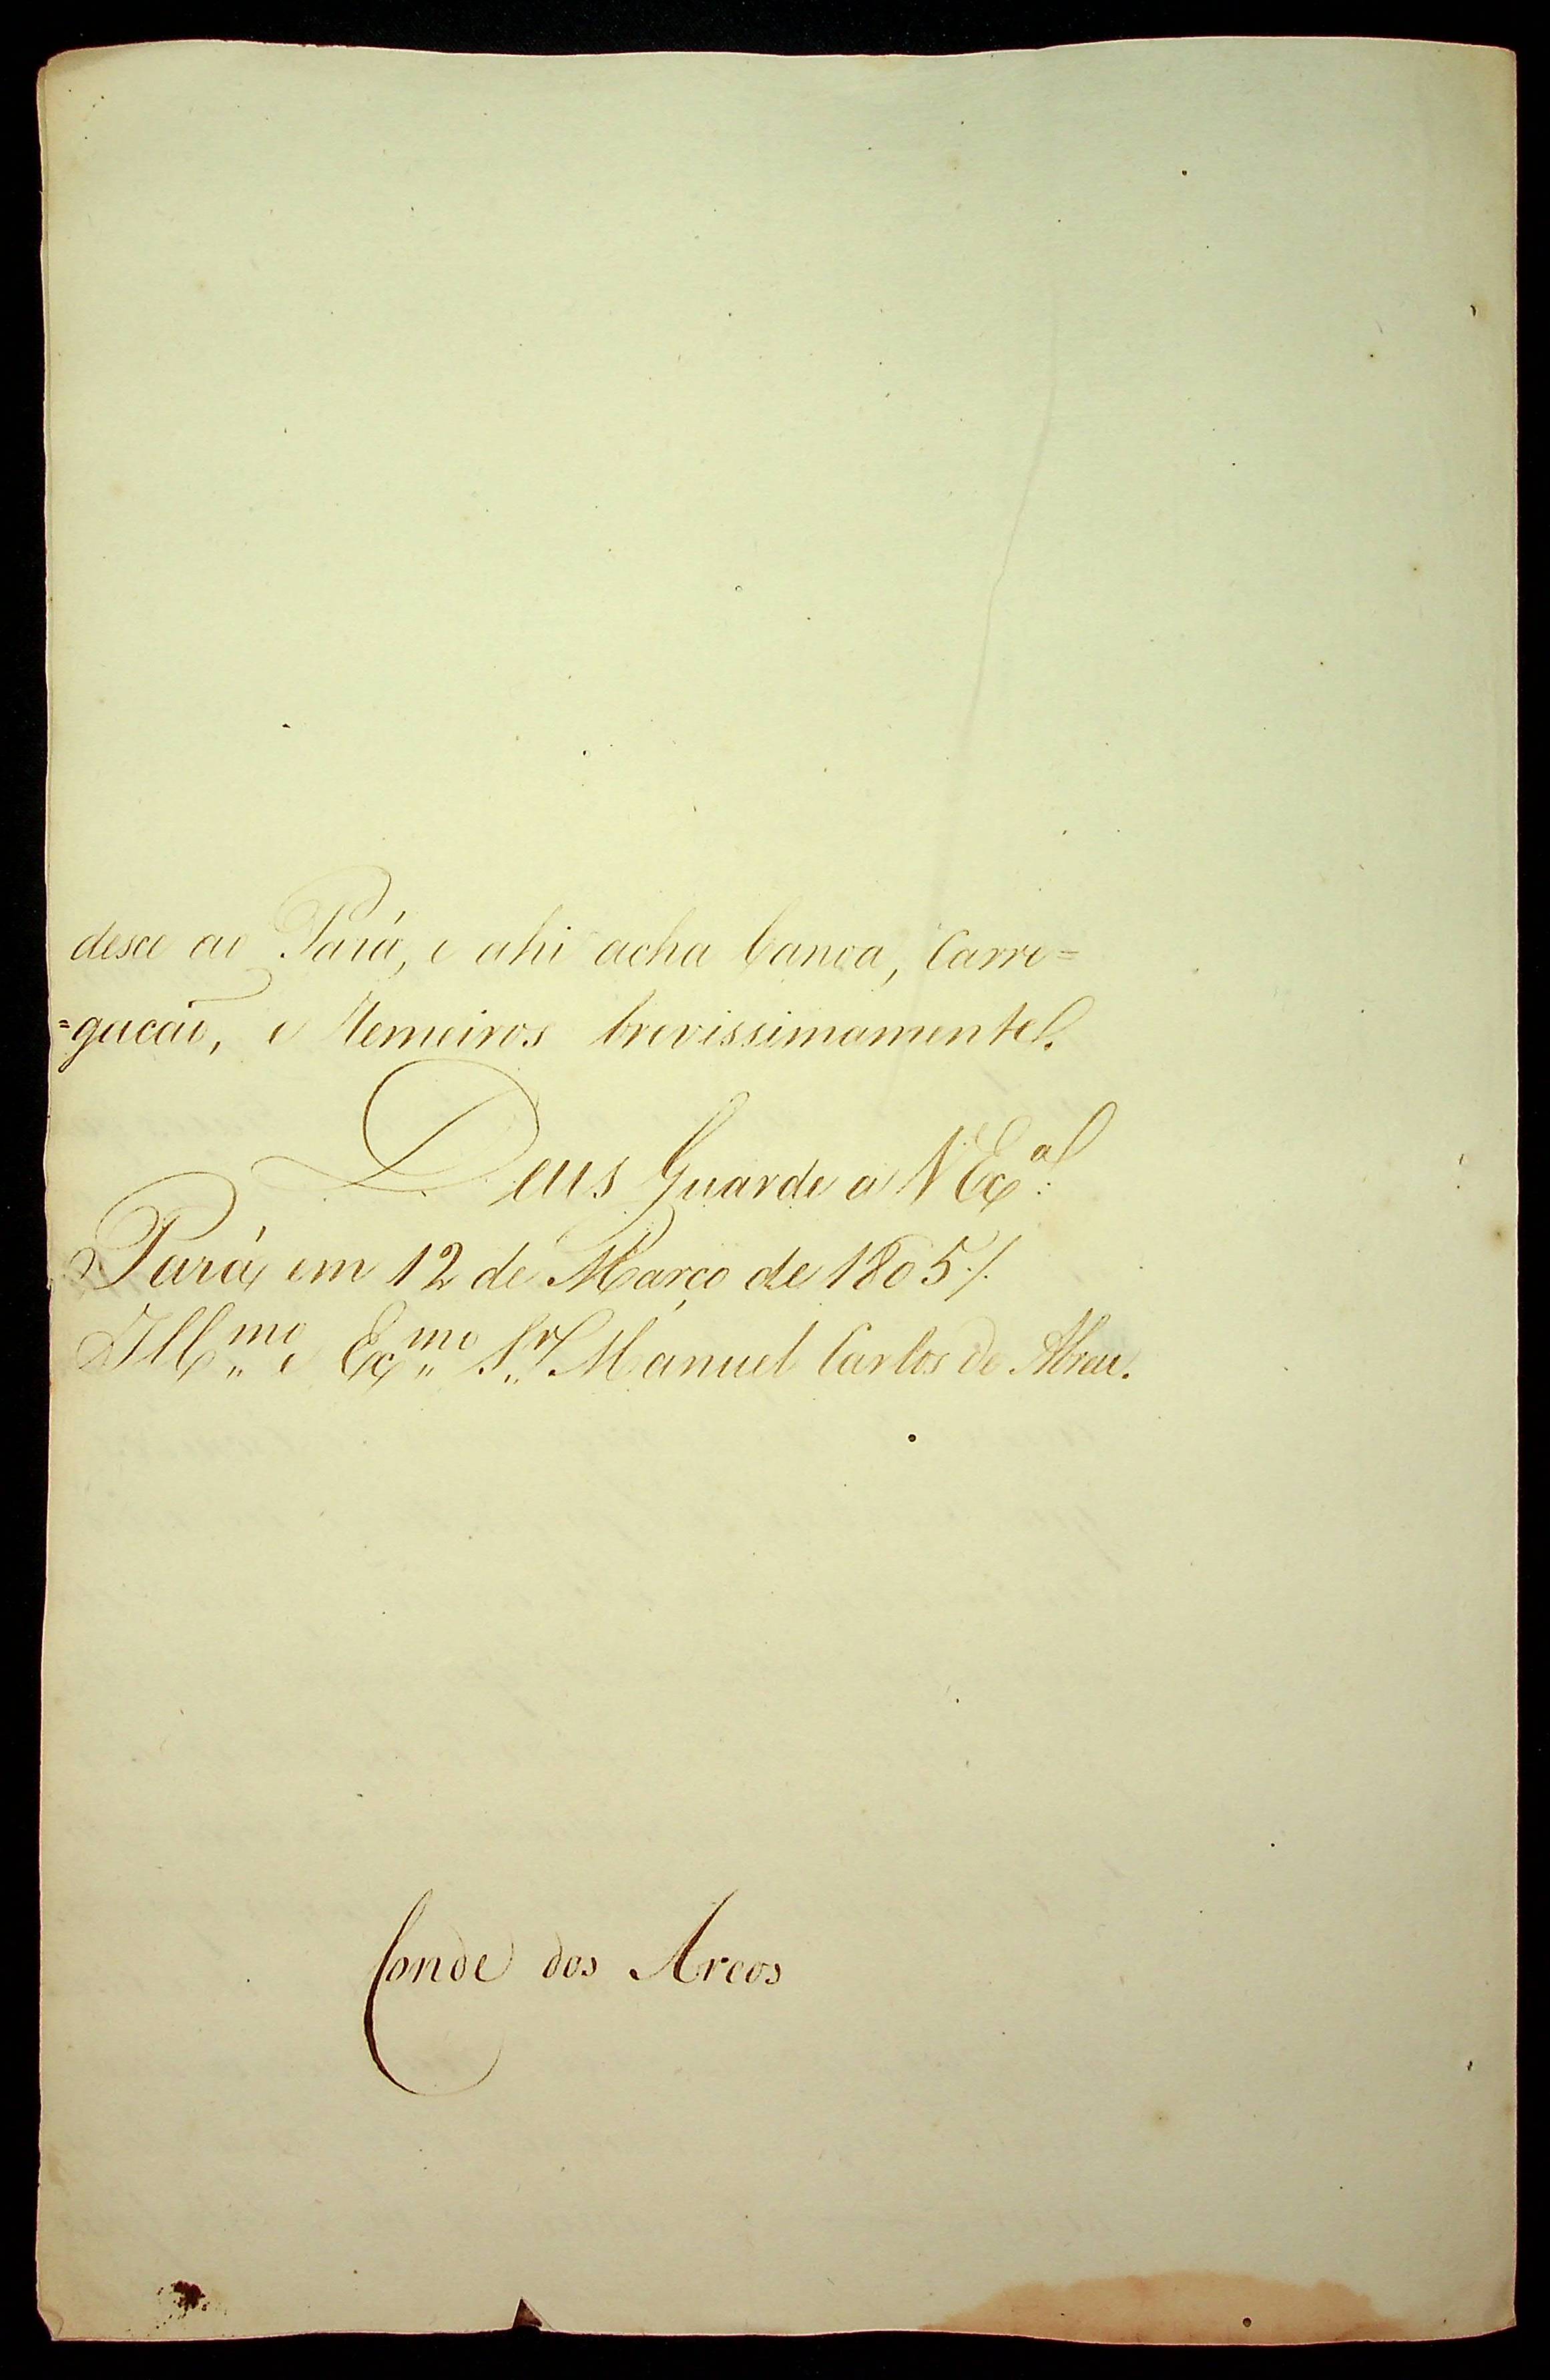 desce ao Pará, e ahi acha Canoa, Carre=
=gacaõ, e Remeiros brevissimamente.
Deus Guarde a V Exª.
Pará em 12 de Março de 1805./.
Illmo e Exmo Sr Manuel Carlos de Abreu.
Conde dos Arcos